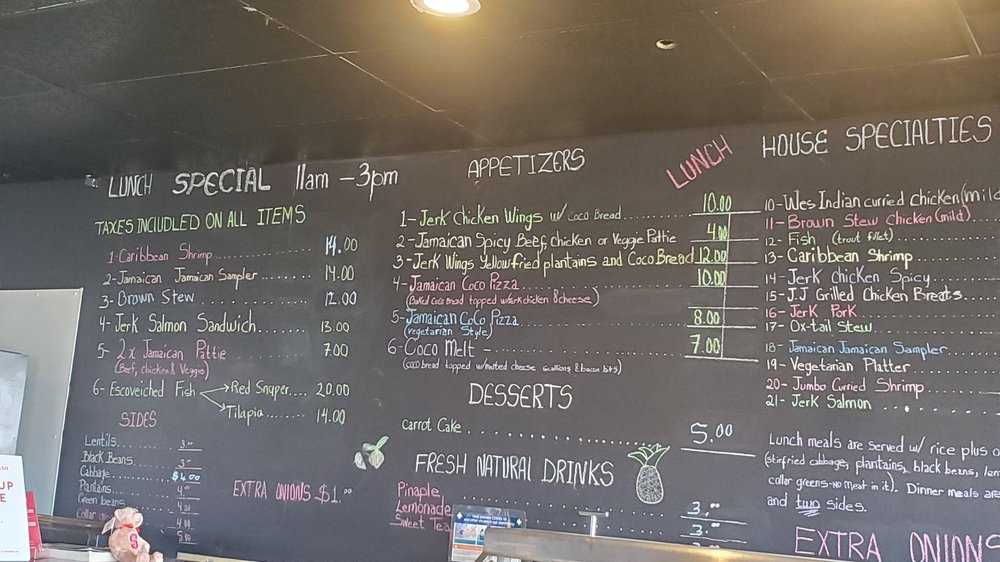 LUNCH SPECIAL 11am - 3pm
TAXES INCLUDLED ON ALL ITEMS
1- Caribbean Shrimp 14.00
2- Jamaican Jamaican Sampler 14.00
3- Brown Stew 12.00
4- Jerk Salmon Sandwich 13.00
5- 2x Jamaican Pattie 7.00
(Beef, chicken & Veggie)
6- Escoveiched Fish
Red Snyper 20.00
Tilapia 14.00
SIDES
Lentils 3.00
Black Beans 3.00
Cabbage $4.00
Plantains 4.00
Green beans 4.00
Collar 4.00
5.00
EXTRA ONIONS $1.00
APPETIZERS
LUNCH
1- Jerk Chicken Wings w/ Coco Bread 10.00
2- Jamaican Spicy Beef, chicken or Veggie Pattie 4.00
3- Jerk Wings Yellow fried plantains and Coco Bread 12.00
4- Jamaican Coco Pizza 10.00
(Baked Coco Bread topped w/ Jerk chicken & cheese)
5- Jamaican CoCo Pizza 8.00
(vegetarian Style)
6- Coco Melt - 7.00
(coco bread topped w/ melted cheese scallions & bacon bits)
DESSERTS
Carrot Cake 5.00
FRESH NATURAL DRINKS
Pinaple 3.00
Lemonade 3.00
Sweet Tea
HOUSE SPECIALTIES
10- Wes Indian curried chicken (mild
11- Brown Stew Chicken (mild)
12- Fish (trout fillet)
13- Caribbean Shrimp
14- Jerk Chicken Spicy
15- J.J Grilled Chicken Breats
16- Jerk Pork
17- Ox-tail Stew
18- Jamaican Jamaican Sampler
19- Vegetarian Platter
20- Jumbo Curried Shrimp
21- Jerk Salmon
Lunch meals are served w/ rice plus
(stirfried cabbage, plantains, black beans,
collar greens-no meat in it). Dinner meals are
and two sides.
EXTRA ONIONS